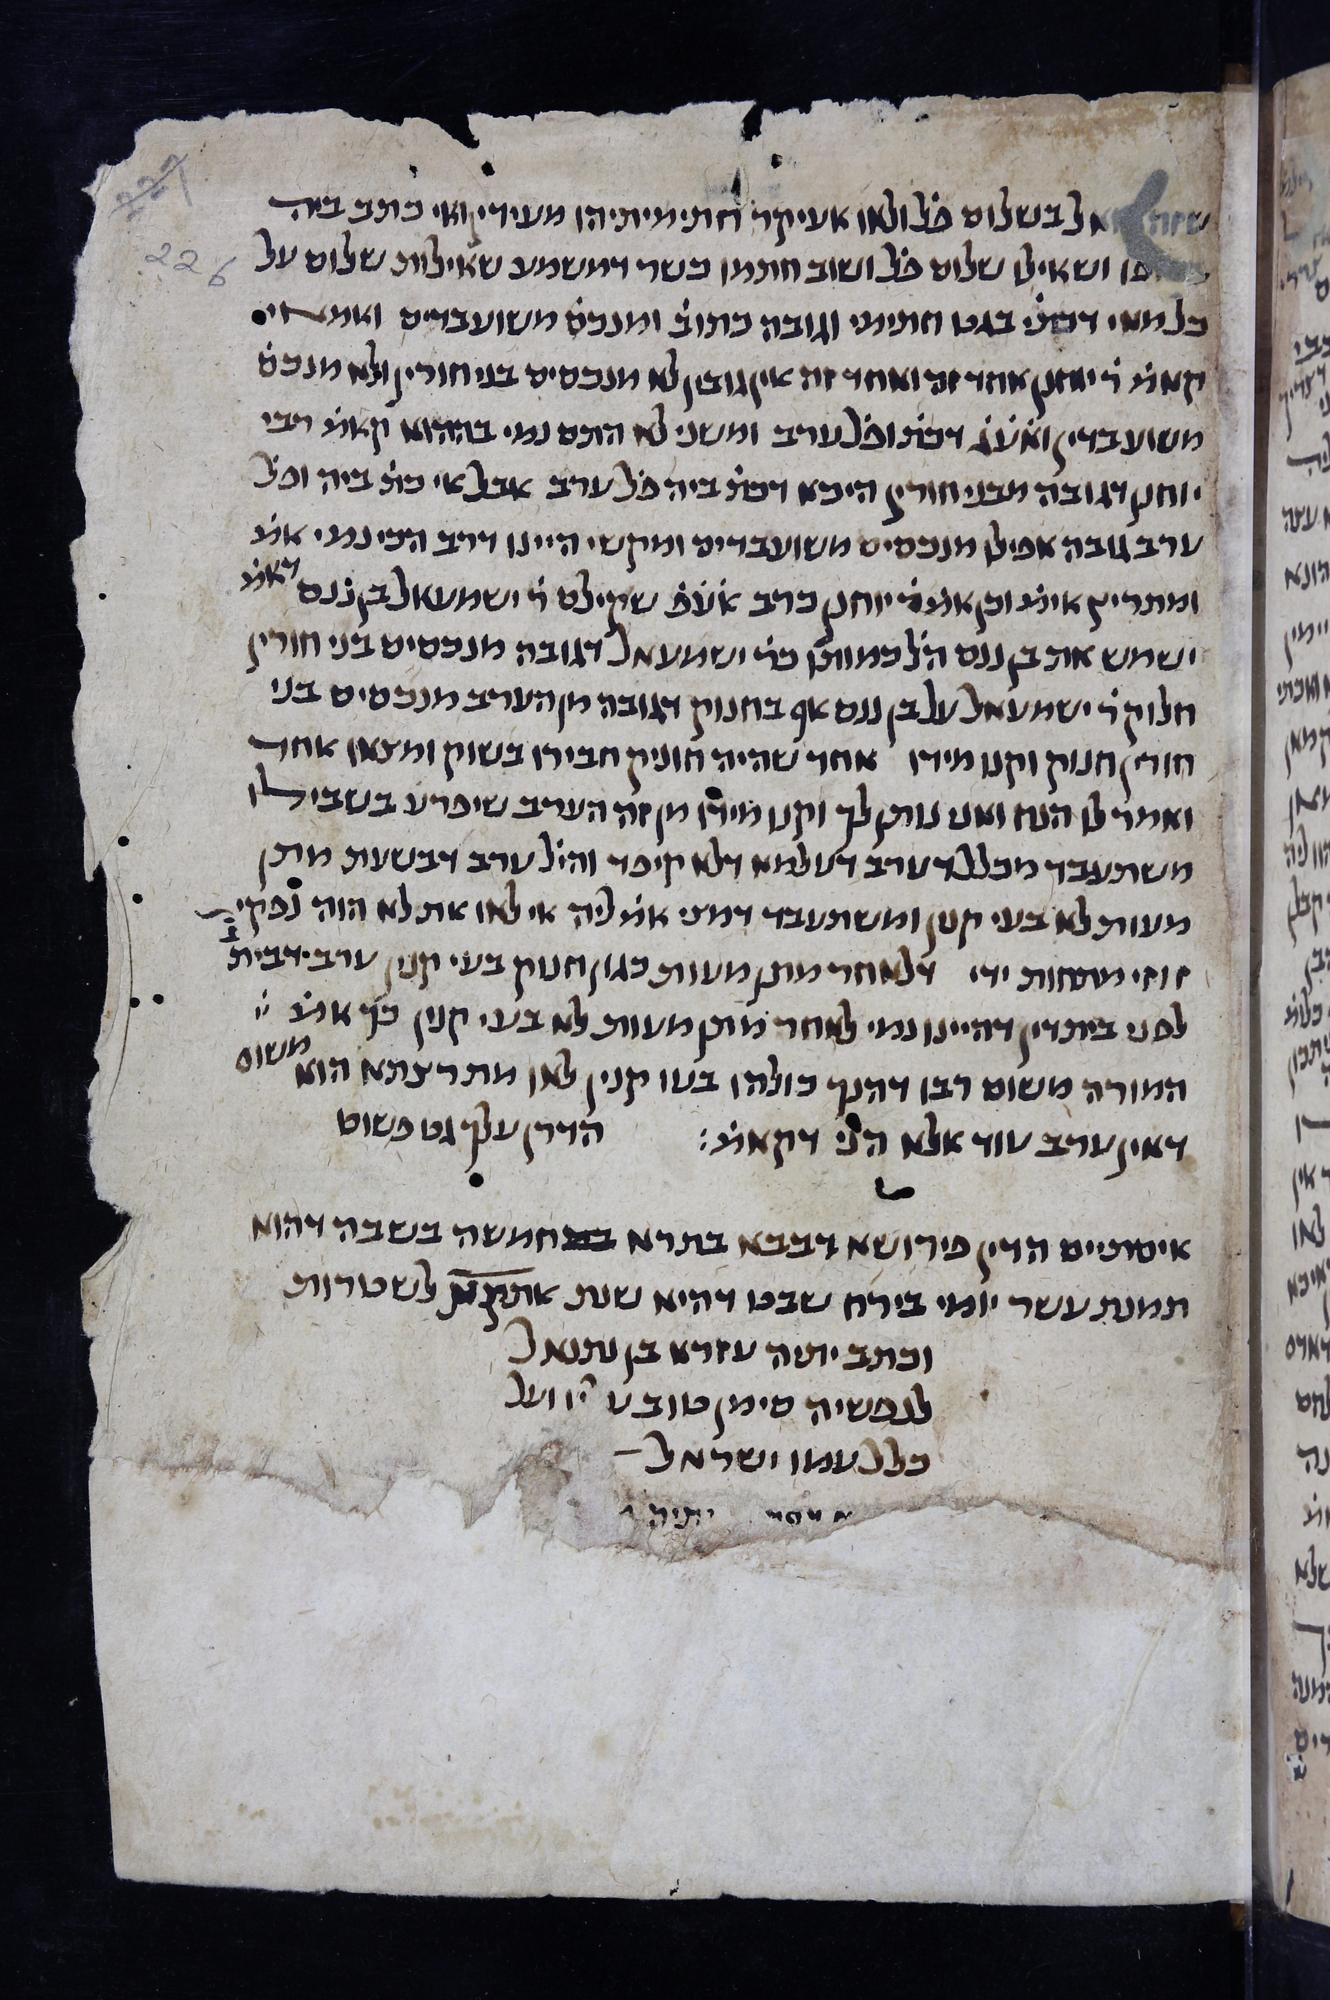 בשלום פל׳ ולאו אעיקר חתימיתיהו מעידין ואי כתב ביה
ושאילו שלום פל׳ ושוב חתמו כשר דמשמע שאילות שלום על
כל מאי דכתי׳ בגט חתימי וגובה כתוב׳ ומנכס׳ משועבדים ואמאי
קאמ׳ ר׳ יוחנן אחד זה ואחד זה אין גובין לא מנכסים בני חורין ולא מנכס׳
משועבדין דכת׳ ופל׳ ערב ומשני לא התם נמי בההוא קאמ׳ רבי
יוחנן דגובה מבני חורין היכא דכת׳ ביה פל׳ ערב אבל אי כת׳ ביה ופל׳
ערב גובה אפילו מנכסים משועבדים ומקשי היינו דרב הכי נמי אמ׳
ומתריץ אימ׳ וכן אמ׳ ר׳ יוחנן כרב אע״פ שקילס ר׳ ישמעאל בן ננס דאמ׳
ישמש את בן ננס הל׳ כמותו כר׳ ישמעאל דגובה מנכסים בני חורין
חלוק ר׳ ישמעאל על בן ננס אף בחנוק דגובה מן הערב מנכסים בני
חורין חנוק וקנו מידו אחד שהיה חונק חבירו בשוק ומצאו אחד
ואמר לו הנח ואני נותן לך וקנו מידו מן זה הערב שיפרע בשבילו
משתעבד מכלל דערב דעלמא דלא קיפד והיל׳ ערב דבשעת מתן
מעות לא בעי קנין ומשתעבד דמצי אמ׳ ליה אי לאו את לא הוה נפקי
זוזי מתחות ידי דלאחר מתן מעות כגון חנוק בעי קנין ערב דבית
לפני בית דין דהיינו נמי לאחר מתן מעות לא בעי קנין כך אמ׳
המורה משום רבו דהנך כולהו בעו קנין לאו מתרצתא הוא משום
דאין ערב עוד אלא הני דקאמ׳: הדרן עלך גט פשוט
איסתיים הדין פירושא דבבא בתרא בחמשה בשבה דהוא
תמנת עשר יומי בירח שבט דהיא שנת לשטרות
וכתב יתיה עזרא בן נתנאל
לנפשיה סימן טוב ע׳ ועל
כלל עמו ישראל
יתיה
226